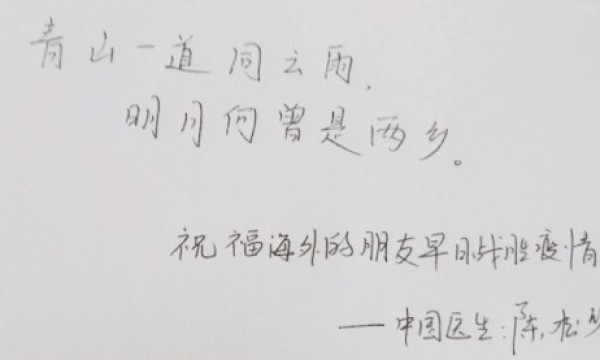 青山一道同云雨，
明月何曾是两乡。
祝福海外的朋友早日战胜疫情
——中国医生：陈松